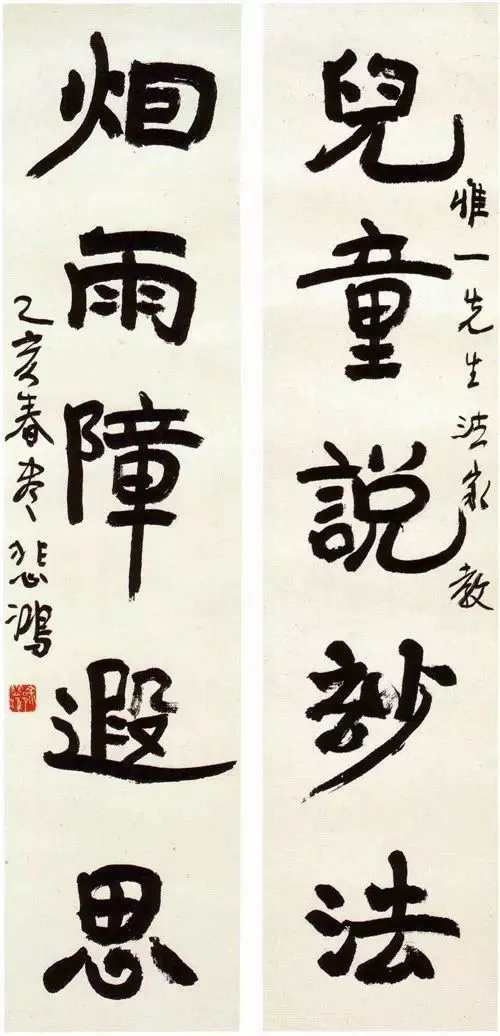 兒童說玅法
惟一先生法家教
烟雨障遐思
乙亥春尽悲鴻